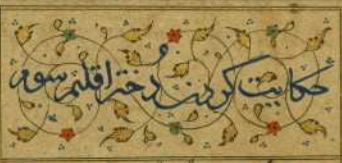 حکایت کردن دختر اقلیم سوم